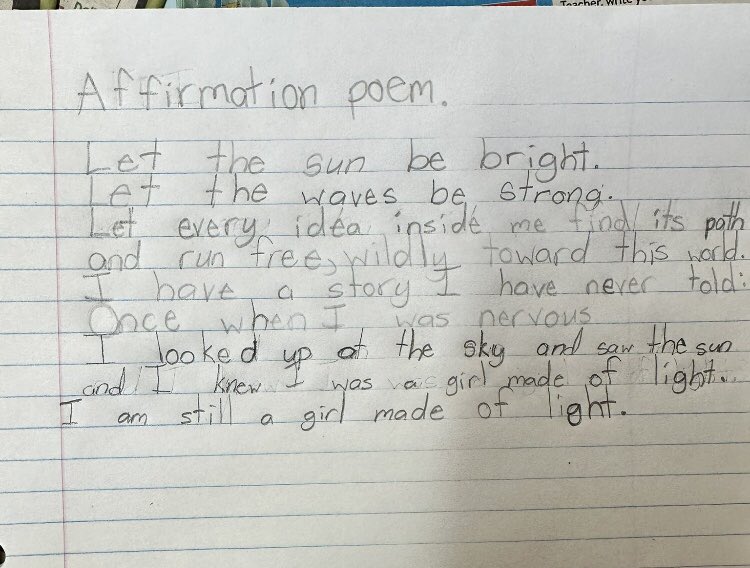 Teacher, write y
Affirmation poem.
Let the sun be bright.
Let the waves be strong.
Let every idea inside me find its path
and run free, wildly toward this world.
I have a story I have never told:
Once when I was nervous
I looked up at the sky and saw the sun
and I knew I was a girl made of light.
I am still a girl made of light.